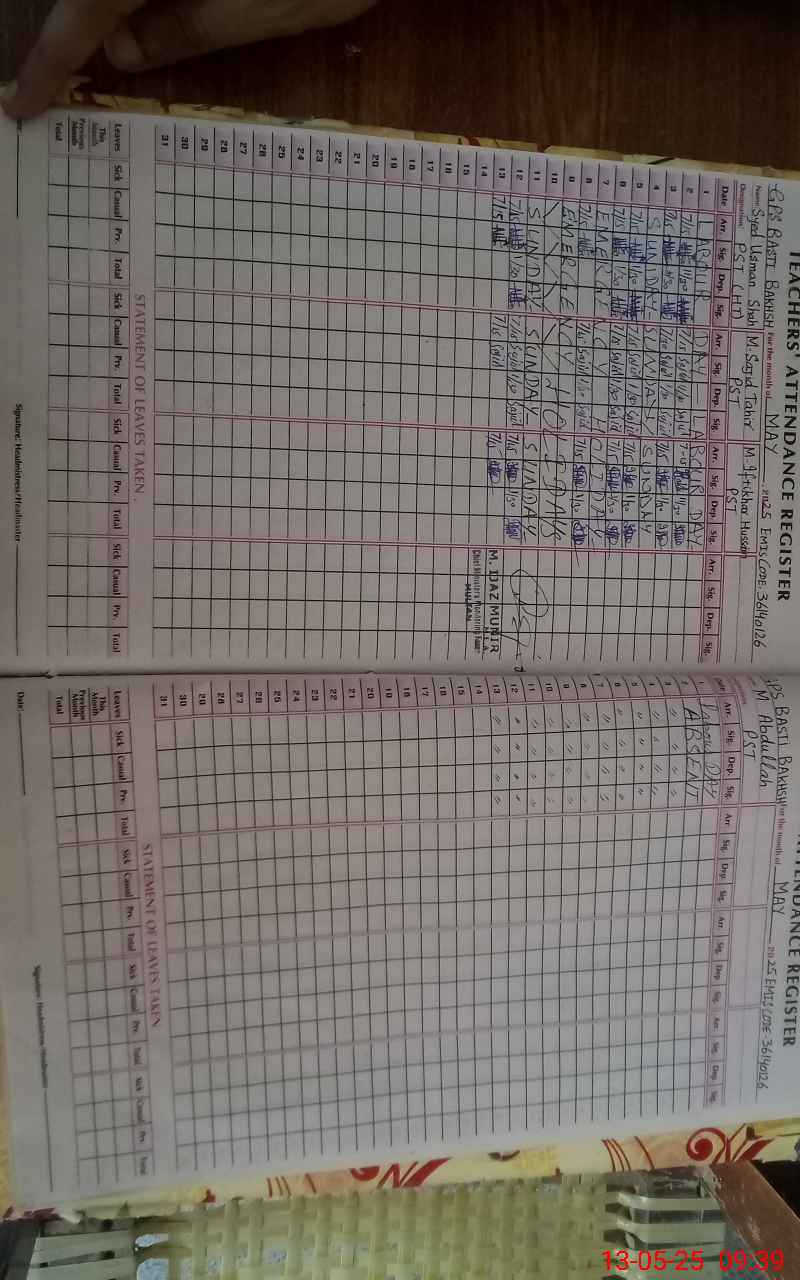 TEACHERS' ATTENDANCE REGISTER
GPS BASTI BAKHSH For the month of MAY 2025 EMIS CODE: 36140126
Name Syed Usman Shah M. Sajid Tahir M. Iftikhar Hussain
Designation PST (HT) PST PST
Date Arr. Sig. Dep. Sig. Arr. Sig. Dep. Sig. Arr. Sig. Dep. Sig. Arr. Sig. Dep. Sig.
1 LABOUR DAY - LABOUR DAY-
2 7/15 11/30 7/15 Sajid 11/30 Sajid 7/15 11/30
3 7/15 1/30 7/15 Sajid 1/30 Sajid 7/15 1/30
4 SUNDAY- SUNDAY SUNDAY
5 7/15 1/30 7/15 Sajid 1/30 Sajid 7/15 1/30
6 7/15 1/30 7/15 Sajid 1/30 Sajid 7/15 1/30
7 EMERGENCY HOLIDAY-
8 7/15 1/30 7/15 Sajid 1/30 Sajid 7/15 1/30
9 EMERGENCY
10 HOLIDAYS
11 SUNDAY- SUNDAY- SUNDAY-
12 7/15 1/30 7/15 Sajid 1/30 Sajid 7/15 1/30
13 7/15 7/15 Sajid 7/15
M. IJAZ MUNIR
Chief Minister's Monitoring Force
MULTAN
14
15
16
17
18
19
20
21
22
23
24
25
26
27
28
29
30
31
STATEMENT OF LEAVES TAKEN
Leaves Sick Casual Prv. Total Sick Casual Prv. Total Sick Casual Prv. Total Sick Casual Prv. Total
This Month
Previous Month
Total
Signature: Headmistress/Headmaster
ATTENDANCE REGISTER
GPS BASTI BAKHSH For the month of MAY 2025 EMIS CODE 36140126
M Abdullah
PST
Date Arr. Sig. Dep. Sig. Arr. Sig. Dep. Sig. Arr. Sig. Dep. Sig. Arr. Sig. Dep. Sig.
1 Labour DAY
2 ABSENT
3 " " " "
4 " " " "
5 " " " "
6 " " " "
7 " " " "
8 " " " "
9 " " " "
10 " " " "
11 " " " "
12 " " " "
13 " " " "
14
15
16
17
18
19
20
21
22
23
24
25
26
27
28
29
30
31
STATEMENT OF LEAVES TAKEN
Leaves Sick Casual Prv. Total Sick Casual Prv. Total Sick Casual Prv. Total Sick Casual Prv. Total
This Month
Previous Month
Total
Date: Signature: Headmistress/Headmaster
13-05-25 09:39